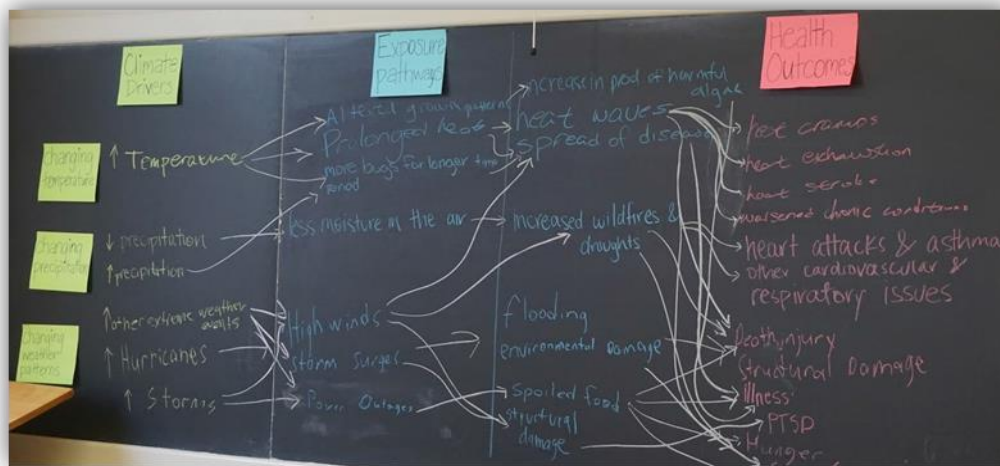 Climate
Drivers
Exposure
pathways
Health
Outcomes
changing
temperature
↑ Temperature
changing
precipitation
↓ precipitation
↑ precipitation
changing
weather
patterns
↑ other extreme weather
events
↑ Hurricanes
↑ Storms
Altered growth patterns
Prolonged heat
more bugs for longer time
period
less moisture in the air
High winds
Storm Surges
Power Outages
increase in prod of harmful
algae
heat waves
spread of disease
increased wildfires &
droughts
flooding
environmental Damage
spoiled food
structural
damage
heat cramps
heat exhaustion
heat stroke
worsened chronic conditions
heart attacks & asthma
other cardiovascular &
respiratory issues
Death, injury
Structural Damage
illness
PTSD
Hunger